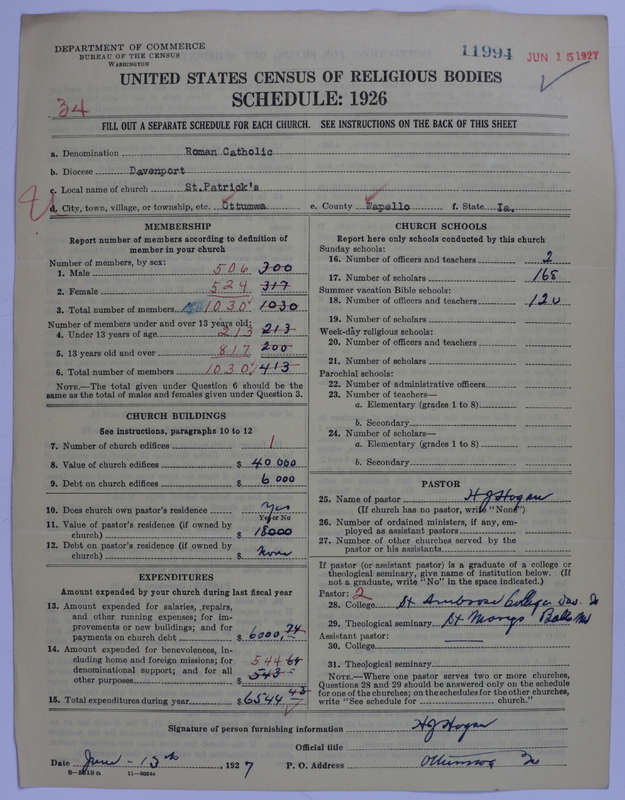 DEPARTMENT OF COMMERCE
BUREAU OF THE CENSUS
WASHINGTON
11994
JUN 15 1927
UNITED STATES CENSUS OF RELIGIOUS BODIES
SCHEDULE: 1926
34
FILL OUT A SEPARATE SCHEDULE FOR EACH CHURCH. SEE INSTRUCTIONS ON THE BACK OF THIS SHEET
a. Denomination Roman Catholic
b. Diocese Davenport
c. Local name of church St.Patrick's
d. City, town, village, or township, etc. Ottumwa e. County Wapello f. State Ia.
MEMBERSHIP
Report number of members according to definition of
member in your church
Number of members, by sex:
1. Male 506 300
2. Female 524 317
3. Total number of members 1030 1030
Number of members under and over 13 years old:
4. Under 13 years of age 213 213
5. 13 years old and over 817 200
6. Total number of members 1030 413
NOTE.—The total given under Question 6 should be
same as the total of males and females given under Question 3.
CHURCH BUILDINGS
See instructions, paragraphs 10 to 12
7. Number of church edifices 1
8. Value of church edifices $ 40 000
9. Debt on church edifices $ 6 000
10. Does church own pastor's residence Yes
Yes or No
11. Value of pastor's residence (if owned by
church) $ 18000
12. Debt on pastor's residence (if owned by
church) $ None
EXPENDITURES
Amount expended by your church during last fiscal year
13. Amount expended for salaries, repairs,
and other running expenses; for im-
provements or new buildings; and for
payments on church debt $ 6000,74
14. Amount expended for benevolences, in-
cluding home and foreign missions; for 544 64
denominational support; and for all
other purposes $ 543
15. Total expenditures during year $ 6544 43
CHURCH SCHOOLS
Report here only schools conducted by this church
Sunday schools:
16. Number of officers and teachers 2
17. Number of scholars 168
Summer vacation Bible schools:
18. Number of officers and teachers 120
19. Number of scholars
Week-day religious schools:
20. Number of officers and teachers
21. Number of scholars
Parochial schools:
22. Number of administrative officers
23. Number of teachers—
a. Elementary (grades 1 to 8)
b. Secondary
24. Number of scholars—
a. Elementary (grades 1 to 8)
b. Secondary
PASTOR
25. Name of pastor H J Hogan
(If church has no pastor, write "None")
26. Number of ordained ministers, if any, em-
ployed as assistant pastors
27. Number of other churches served by the
pastor or his assistants
If pastor (or assistant pastor) is a graduate of a college or
theological seminary, give name of institution below. (If
not a graduate, write "No" in the space indicated.)
Pastor: 2
28. College St Ambrose College Dav. Io
29. Theological seminary St Marys Balto Md
Assistant pastor:
30. College
31. Theological seminary
NOTE.—Where one pastor serves two or more churches,
Questions 28 and 29 should be answered only on the schedule
for one of the churches; on the schedules for the other churches,
write "See schedule for church."
Signature of person furnishing information H J Hogan
Official title
Date June - 13th, 1927 P. O. Address Ottumwa Io
8-5519a 11-9664